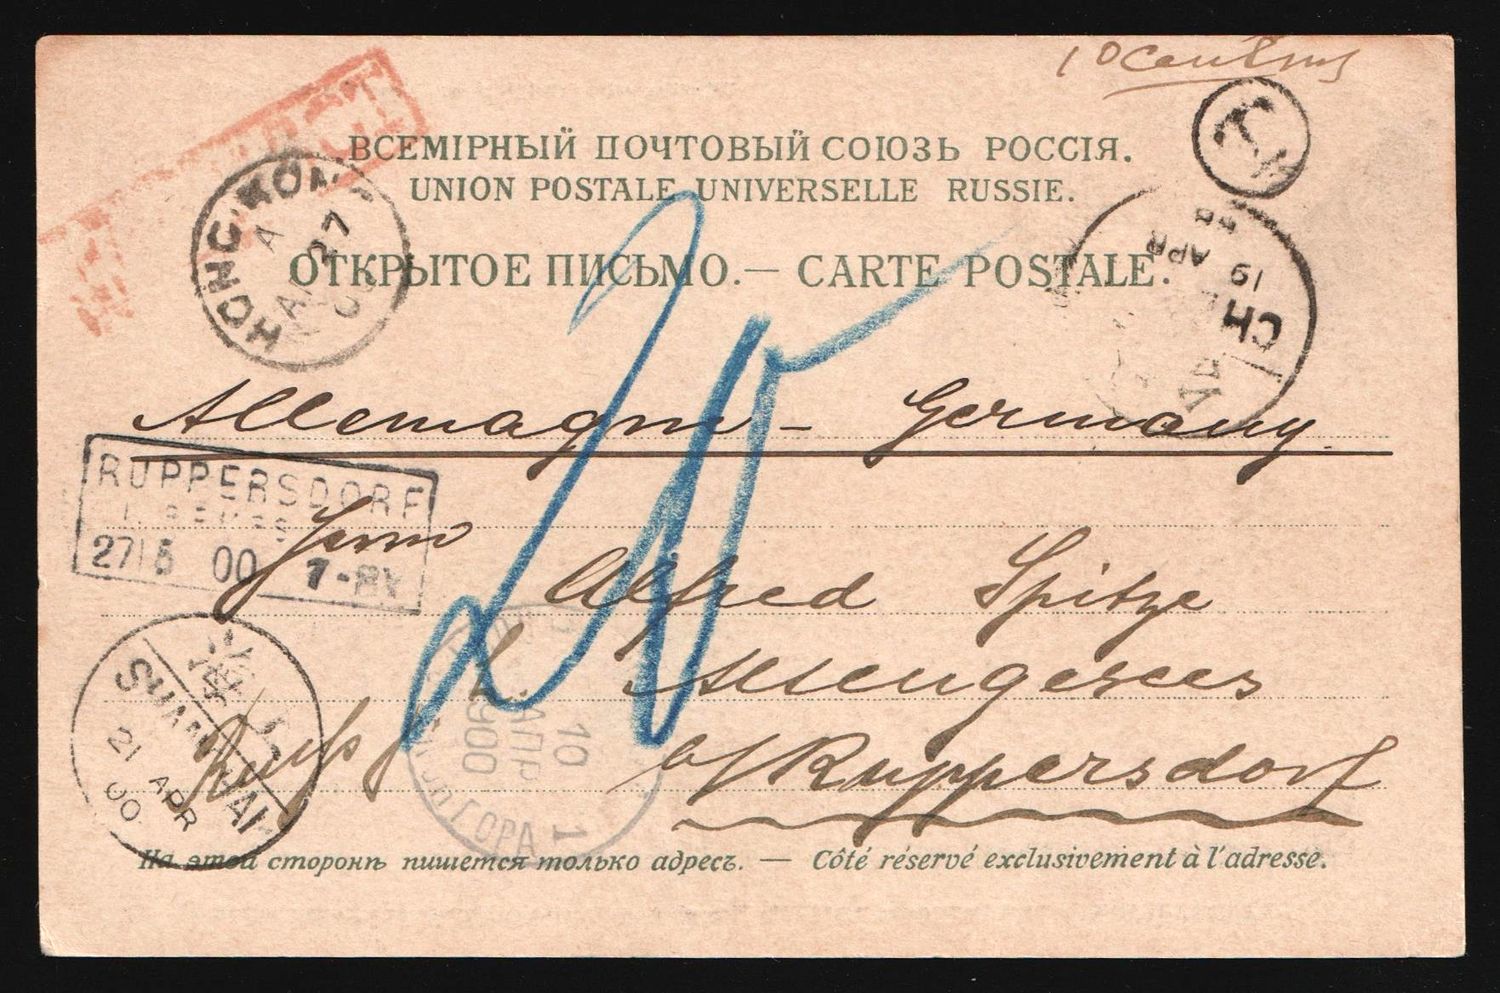 10 Centimes
T
ВСЕМІРНЫЙ ПОЧТОВЫЙ СОЮЗЪ РОССІЯ.
UNION POSTALE UNIVERSELLE RUSSIE.
HONG KONG
A
27
ОТКРЫТОЕ ПИСЬМО. — CARTE POSTALE.
19 APR
CH
20
Allemagne - Germany
RUPPERSDORF
27 5 00 7-8V
Herrn
Alfred Spitze
SHANGHAI
21 APR
00
10
АПР
1900
1
ГОРА
Ruppersdorf
На этой сторонѣ пишется только адресъ. — Côté réservé exclusivement à l'adresse.